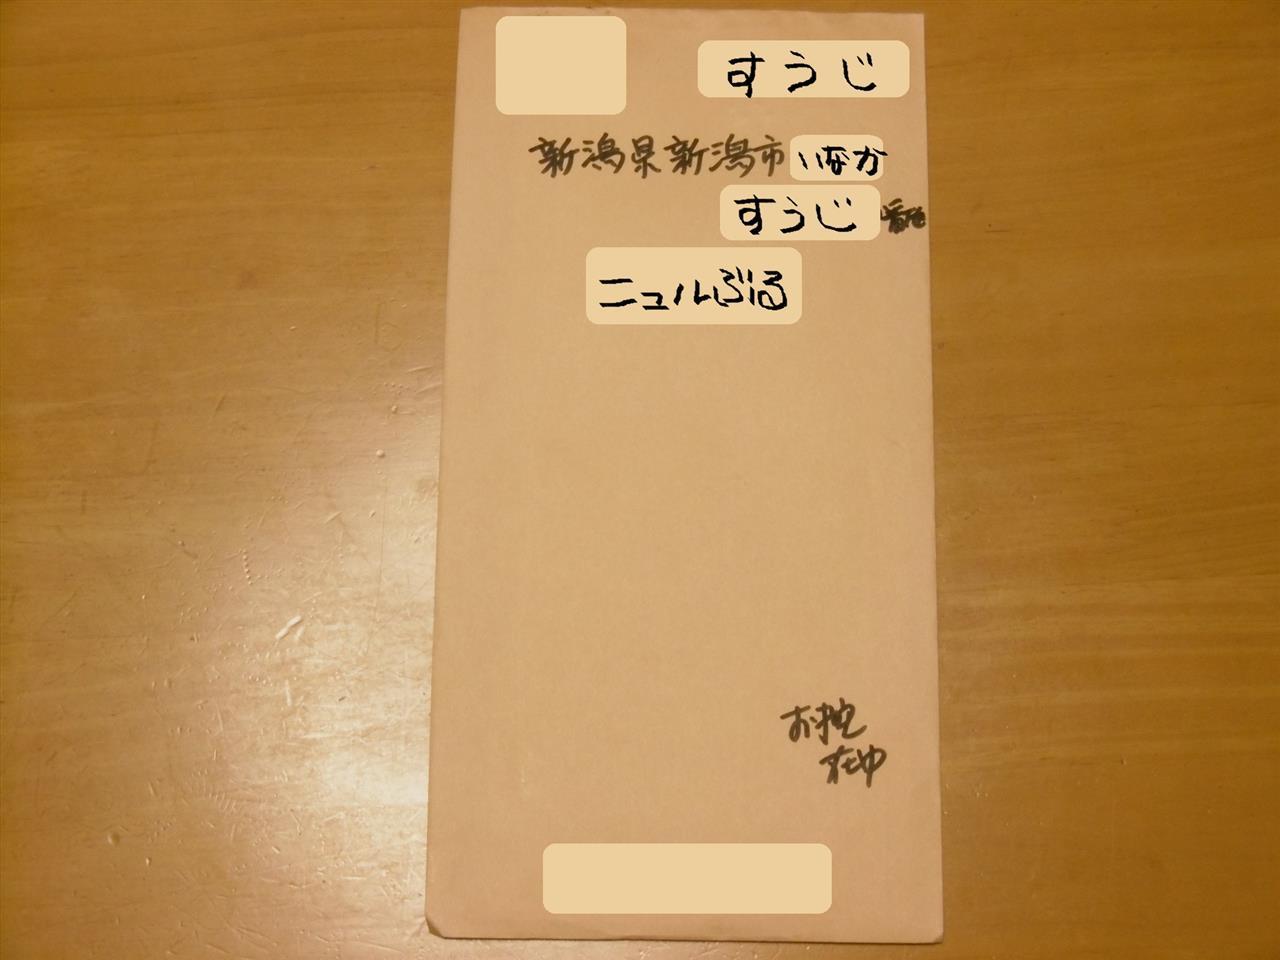 すうじ
新潟県新潟市いなか
すうじ番地
ニュルぶる
お控
在中